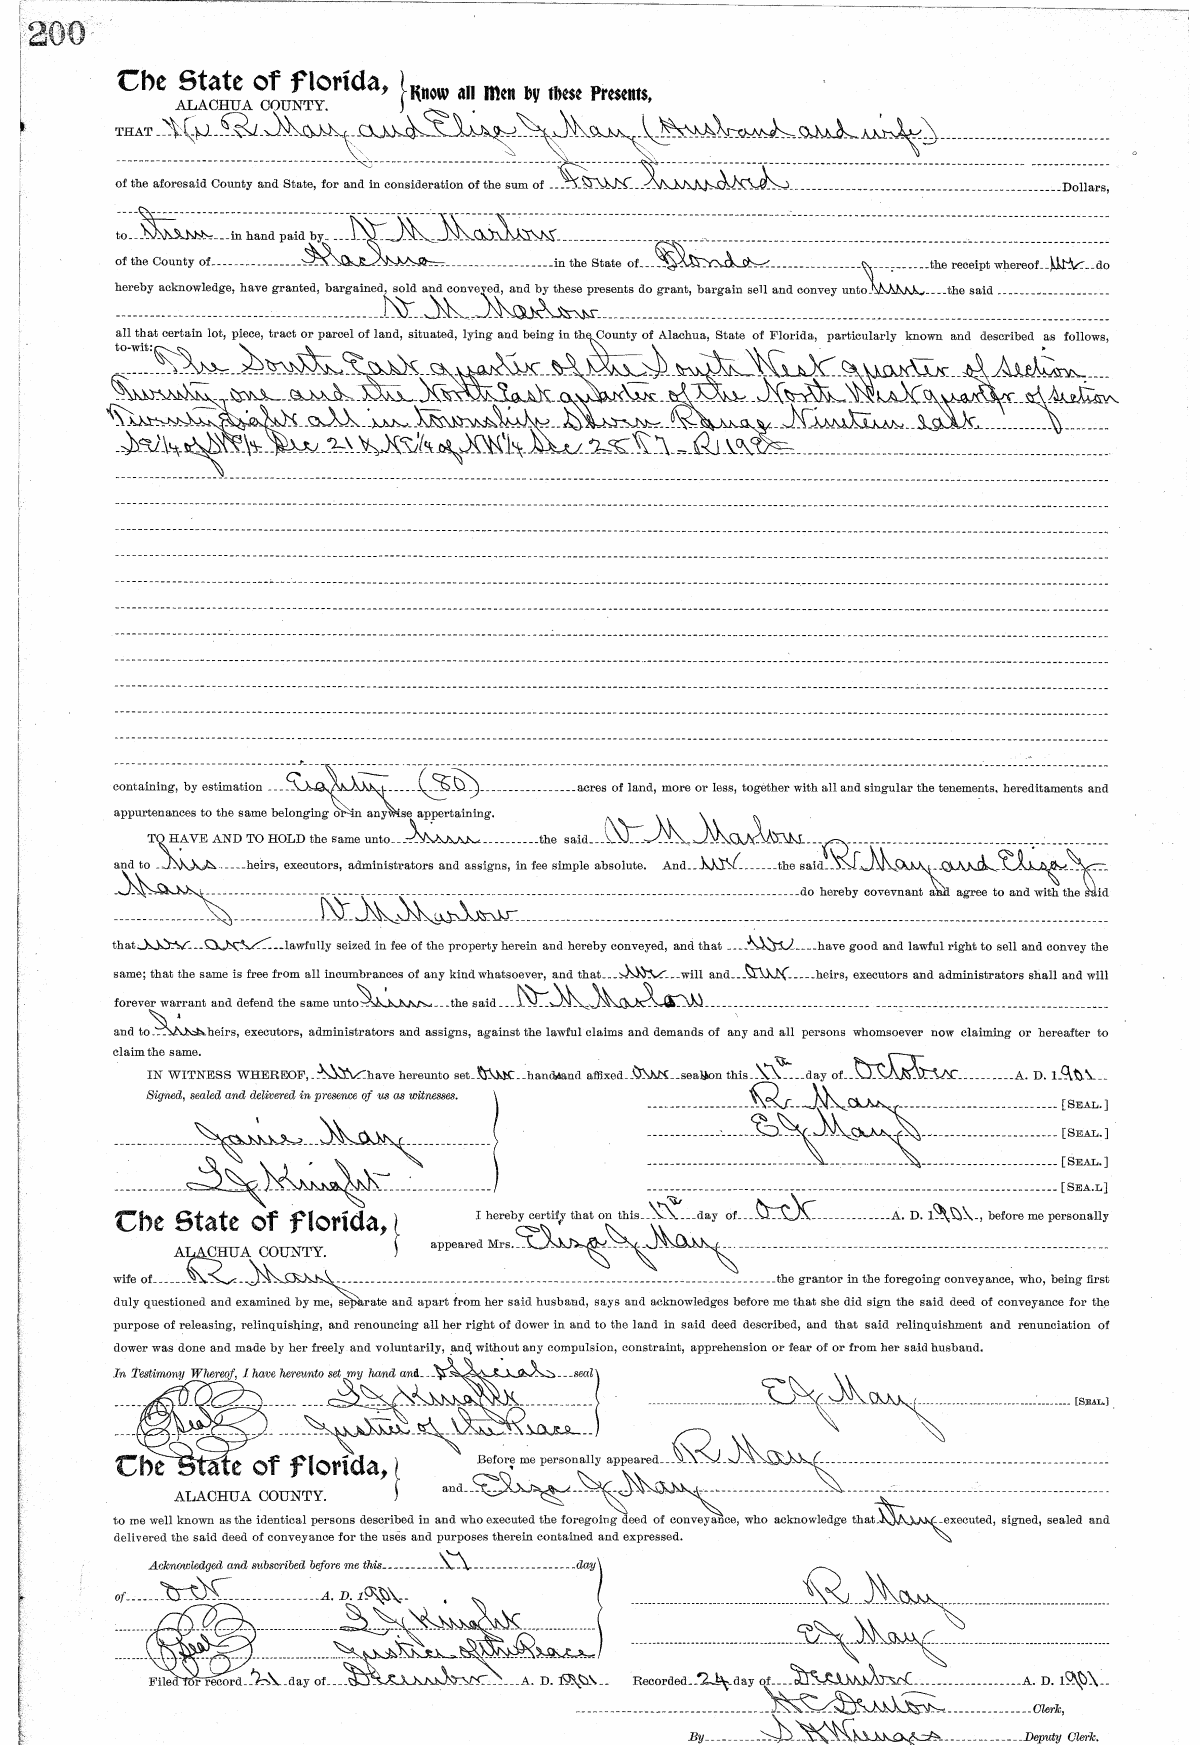 200
The State of Florida,
ALACHUA COUNTY.
Know all Men by these Presents,
THAT We R May and Eliza J May (Husband and wife)
of the aforesaid County and State, for and in consideration of the sum of Four hundred Dollars,
to them in hand paid by N M Marlow
of the County of Alachua in the State of Florida the receipt whereof we do
hereby acknowledge, have granted, bargained, sold and conveyed, and by these presents do grant, bargain sell and convey unto him the said
N M Marlow
all that certain lot, piece, tract or parcel of land, situated, lying and being in the County of Alachua, State of Florida, particularly known and described as follows,
to-wit: The South East quarter of the South West quarter of section
Twenty one and the North East quarter of the North West quarter of section
Twenty Eight all in township Seven Range Nineteen east
SE1/4 of SW1/4 Sec 21 & NE1/4 of NW1/4 Sec 28 T7 - R 19
containing, by estimation Eighty (80) acres of land, more or less, together with all and singular the tenements, hereditaments and
appurtenances to the same belonging or in anywise appertaining.
TO HAVE AND TO HOLD the same unto him the said N M Marlow
and to his heirs, executors, administrators and assigns, in fee simple absolute. And we the said R May and Eliza J
May do hereby covevnant and agree to and with the said
N M Marlow
that we are lawfully seized in fee of the property herein and hereby conveyed, and that we have good and lawful right to sell and convey the
same; that the same is free from all incumbrances of any kind whatsoever, and that we will and our heirs, executors and administrators shall and will
forever warrant and defend the same unto him the said N M Marlow
and to his heirs, executors, administrators and assigns, against the lawful claims and demands of any and all persons whomsoever now claiming or hereafter to
claim the same.
IN WITNESS WHEREOF, we have hereunto set our hands and affixed our seals on this 17th day of October A. D. 1901
Signed, sealed and delivered in presence of us as witnesses.
R May [SEAL.]
E J May [SEAL.]
Janie May
[SEAL.]
L J Knight
[SEA.L]
The State of Florida,
ALACHUA COUNTY.
I hereby certify that on this 17th day of Oct A. D. 1901, before me personally
appeared Mrs. Eliza J May
wife of R May the grantor in the foregoing conveyance, who, being first
duly questioned and examined by me, separate and apart from her said husband, says and acknowledges before me that she did sign the said deed of conveyance for the
purpose of releasing, relinquishing, and renouncing all her right of dower in and to the land in said deed described, and that said relinquishment and renunciation of
dower was done and made by her freely and voluntarily, and without any compulsion, constraint, apprehension or fear of or from her said husband.
In Testimony Whereof, I have hereunto set my hand and official seal
L J Knight
E J May [SEAL.]
Seal Justice of the Peace
The State of Florida,
ALACHUA COUNTY.
Before me personally appeared R May
and Eliza J May
to me well known as the identical persons described in and who executed the foregoing deed of conveyance, who acknowledge that they executed, signed, sealed and
delivered the said deed of conveyance for the uses and purposes therein contained and expressed.
Acknowledged and subscribed before me this 17 day
of Oct A. D. 1901
R May
L J Knight
E J May
Seal Justice of the Peace
Filed for record 21 day of December A. D. 1901 Recorded 24 day of December A. D. 1901
H C Denton Clerk,
By S H Wienges Deputy Clerk.